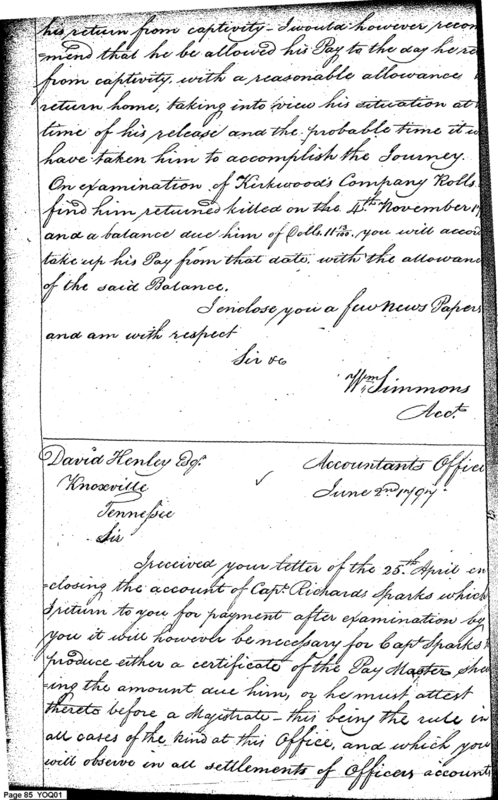 his return from captivity - I would however recom
=mend that he be allowed his Pay to the day he re
from captivity, with a reasonable allowance
return home, taking into view his situation at
time of his release and the probable time it w
have taken him to accomplish the Journey.
On examination of Kirkwood's Company Rolls
find him returned killed on the 4th November 17
and a balance due him of Dolls. 11 you will accor
take up his Pay from that date, with the allowanc
of the said Balance.
I enclose you a few News Papers
and am with respect
Sir &c
Wm Simmons
Acct.
David Henley Esqr.
Accountants Office
Knoxville
June 2nd 1797.
Tennessee
Sir
I received your letter of the 25th April en
=closing the account of Capt. Richard Sparks which
I return to you for payment after examination by
you it will however be necessary for Capt Sparks
produce either a certificate of the Pay Master shew
=ing the amount due him, or he must attest
thereto before a Magistrate - this being the rule in
all cases of the kind at this Office, and which you
will observe in all settlements of Officers accounts
Page 85 YOQ01